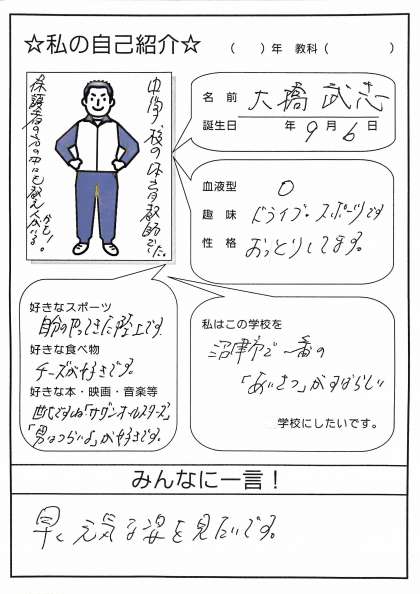 ☆私の自己紹介☆
（　　）年　教科（　　　　　　）
中学校の体育教師でした。
保護者の方の中にも教え人がいる
かも！
名　前　大橋　武志
誕生日　　　　年　9　月　6　日
血液型　O
趣　味　ドライブ・スポーツです
性　格　おっとりしてます。
好きなスポーツ
自分のやってきた陸上です。
好きな食べ物
チーズが好きです。
好きな本・映画・音楽等
古いですね「サザンオールスターズ」
「男はつらいよ」が好きです。
私はこの学校を
沼津市で一番の
「あいさつ」がすばらしい
学校にしたいです。
みんなに一言！
早く元気な姿を見たいです。